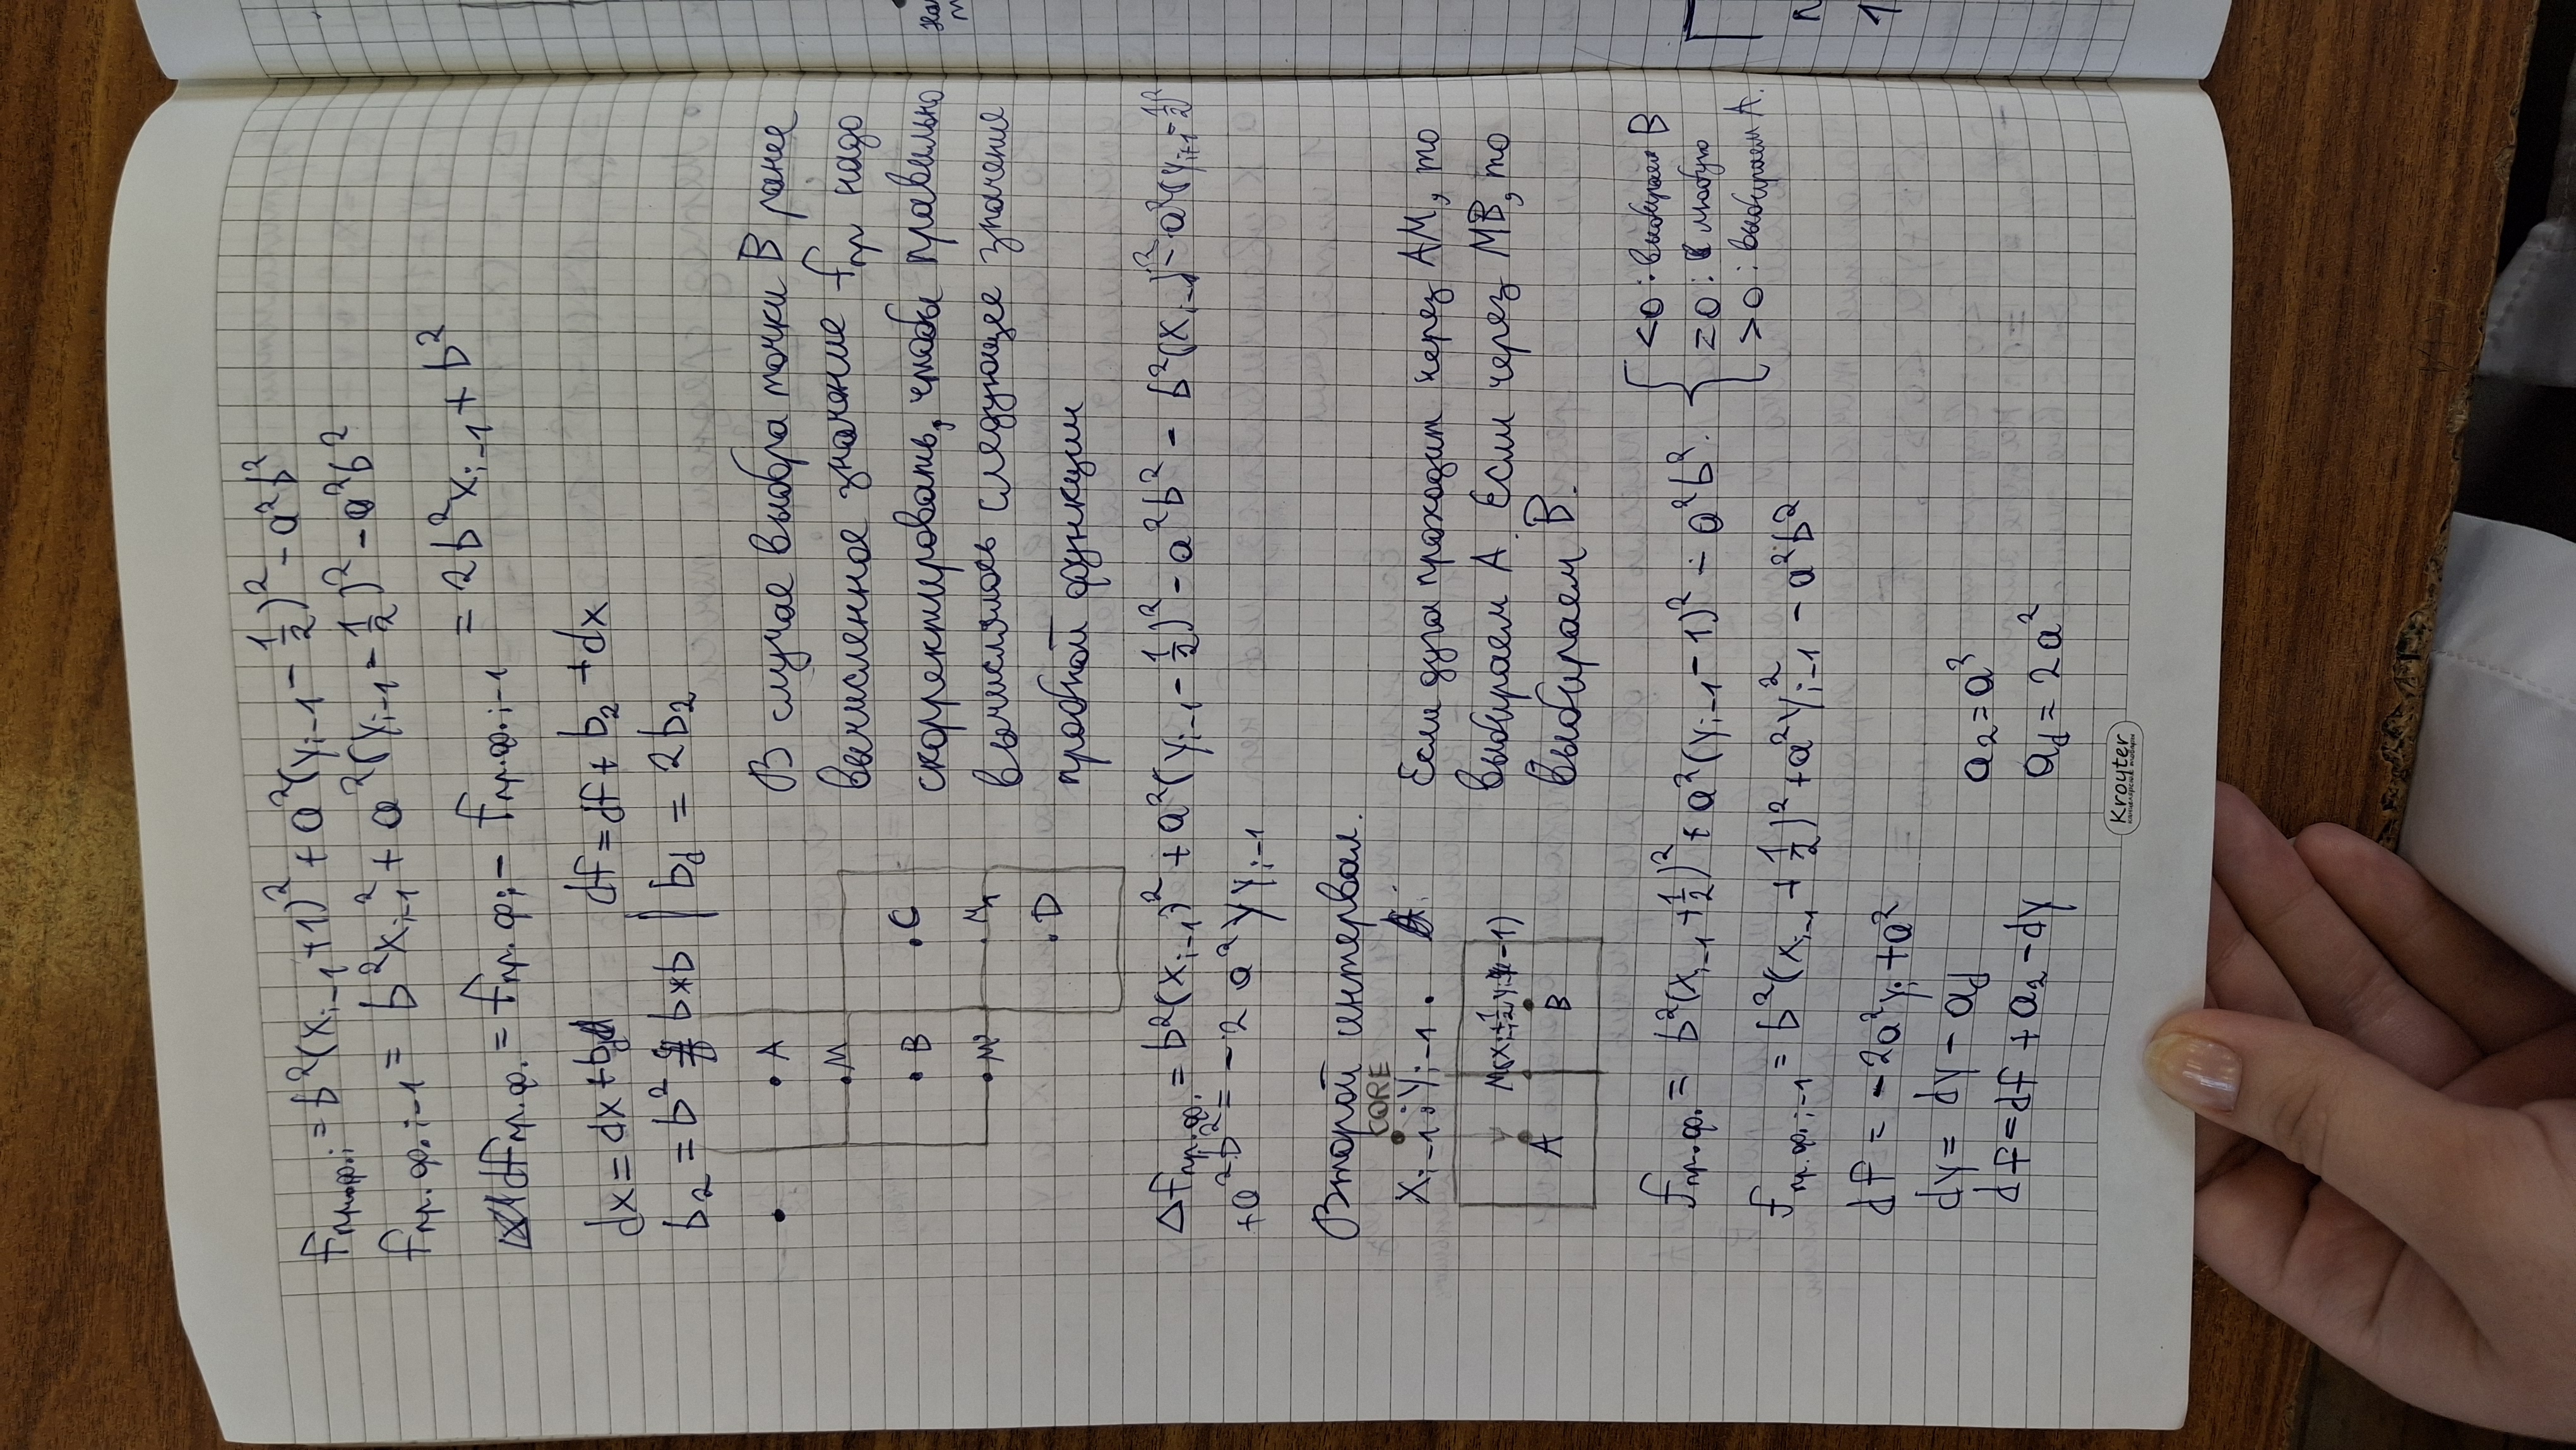 fпр.ф.i = b²(x_{i-1}+1)² + a²(y_{i-1} - 1/2)² - a²b²
fпр.ф.i-1 = b²x_{i-1}² + a²(y_{i-1} - 1/2)² - a²b²
dfпр.ф. = fпр.ф.i - fпр.ф.i-1 = 2b²x_{i-1} + b²
dx = dx + b_d df = df + b₂ + dx
b₂ = b² = b*b | b_d = 2b₂
A
M
B
C
M₁
D
В случае выбра точки B ранее
вычисленное значение fпр надо
скорректировать, чтобы правильно
вычислялось следующее значение
пробной функции
Δfпр.ф. = b²(x_{i-1})² + a²(y_{i-1} - 1/2)² - a²b² - b²(x_{i-1})² - a²(y_{i+1} - 1/2)²
+a²b² = -2a²y_{i-1}
Второй интервал.
CORE
x_{i-1}; y_{i-1}
A
B
Если дуга проходит через AM, то
выбираем A. Если через MB, то
выбираем B.
fпр.ф. = b²(x_{i-1} + 1/2)² + a²(y_{i-1} - 1)² - a²b².
<0: выбираем B
=0: любую
>0: выбираем A.
fпр.ф.i-1 = b²(x_{i-1} + 1/2)² + a²y_{i-1}² - a²b²
df = -2a²y_i + a²
dy = dy - a_d
a₂ = a²
df = df + a₂ - dy
a_d = 2a²
Kroyter
канцелярские товары